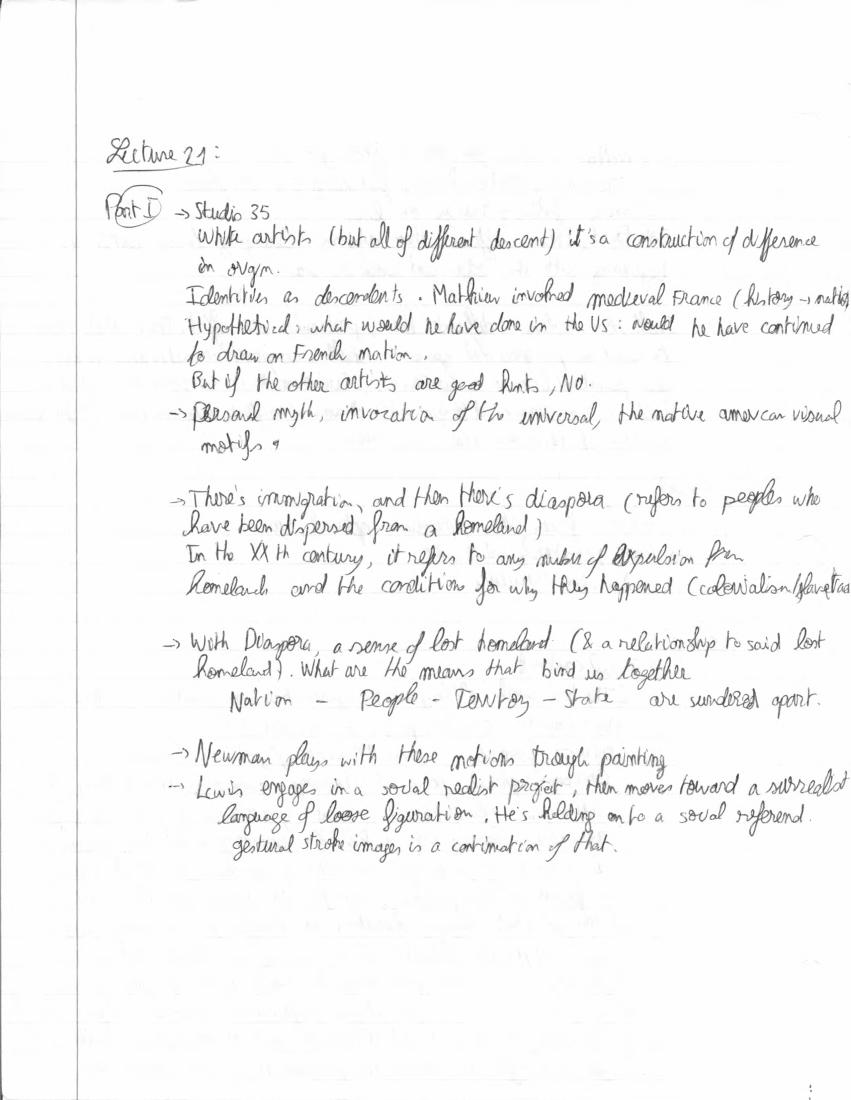 Lecture 21:
Part I → Studio 35
White artists (but all of different descent) it's a construction of difference
in origin.
Identities as descendents. Mathieu involved medieval France (history →
Hypothetical, what would he have done in the US: would he have continued
to draw on French nation.
But if the other artists are good hints, NO.
→ Personal myth, invocation of the universal, the native american visual
motifs
→ There's immigration, and then there's diaspora (refers to peoples who
have been dispersed from a homeland)
In the XXth century, it refers to any number of expulsion from
homeland and the condition for why they happened (colonialism/
→ With Diaspora, a sense of lost homeland (& a relationship to said lost
homeland). What are the means that bind us together
Nation - People - Territory - State are sundered apart.
→ Newman plays with these notions trough painting
→ Lewis engages in a social realist project, then moves toward a surrealist
language of loose figuration. He's holding onto a social referend.
gestural stroke images is a continuation of that.